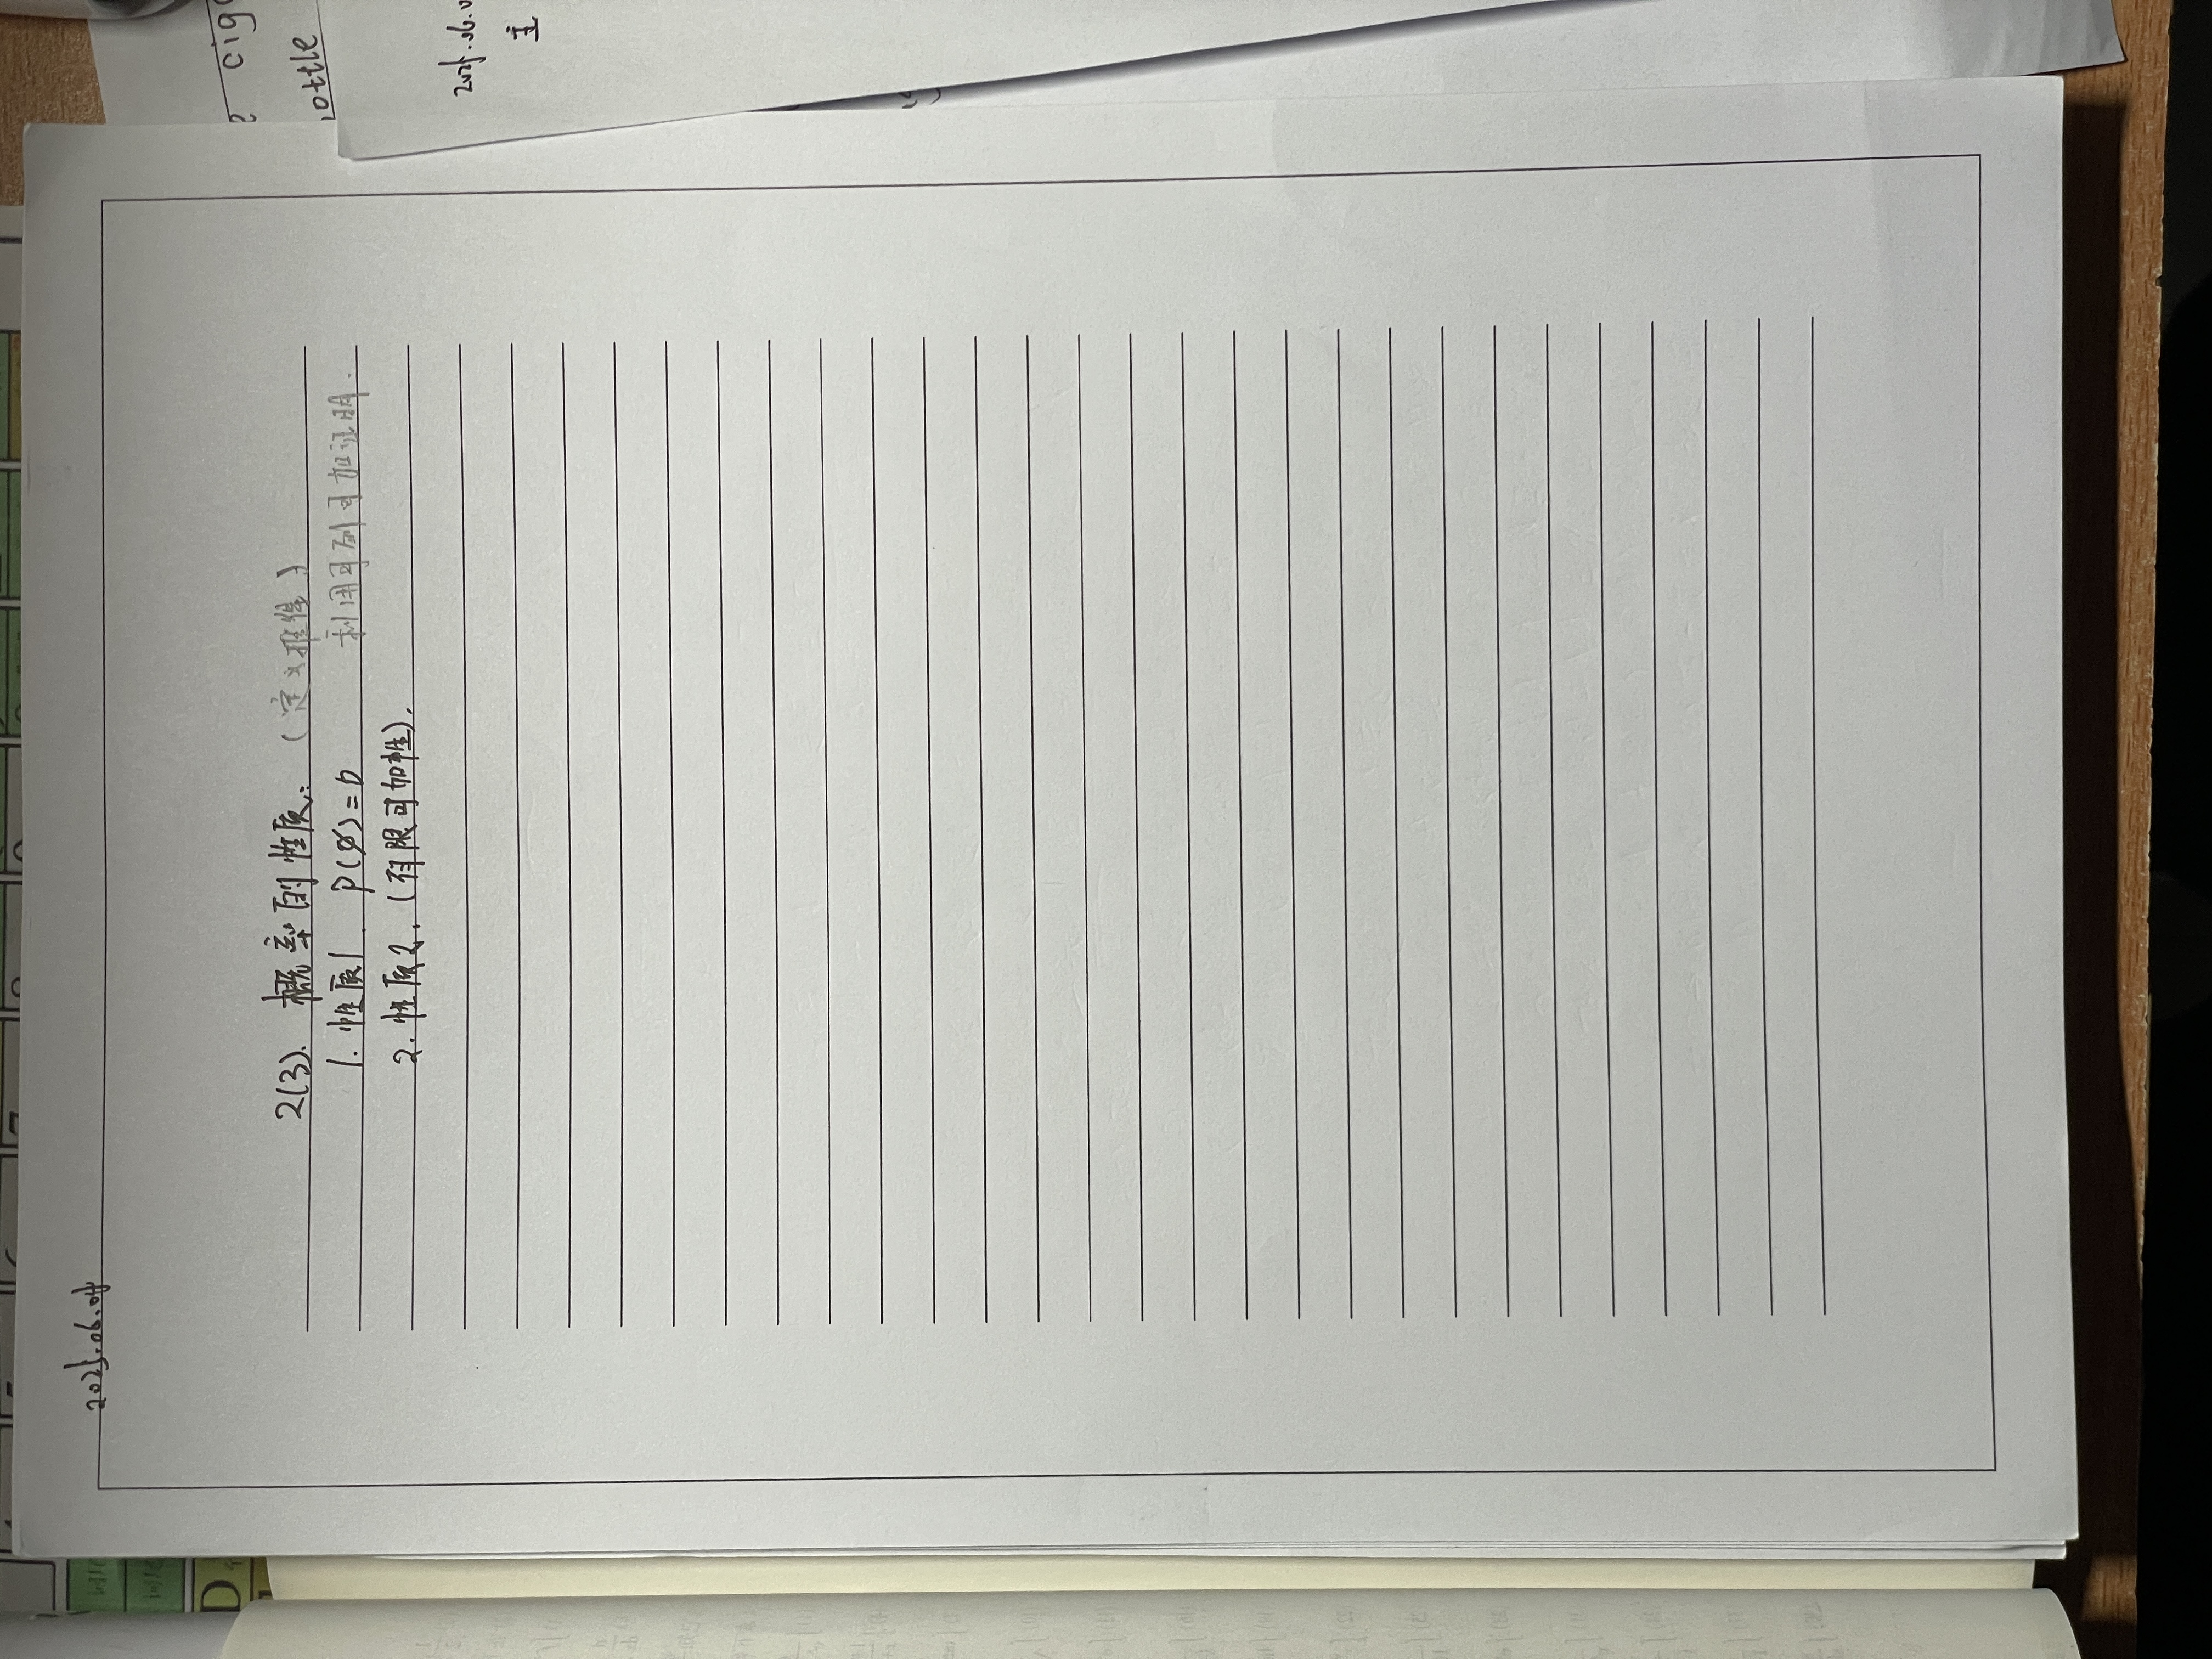 2025.06.04
2(3). 概率的性质: (定义推得)
1. 性质1. P(∅)=0 利用可列可加证明.
2. 性质2. (有限可加性).
cig
ottle
2025.06.0
主
D